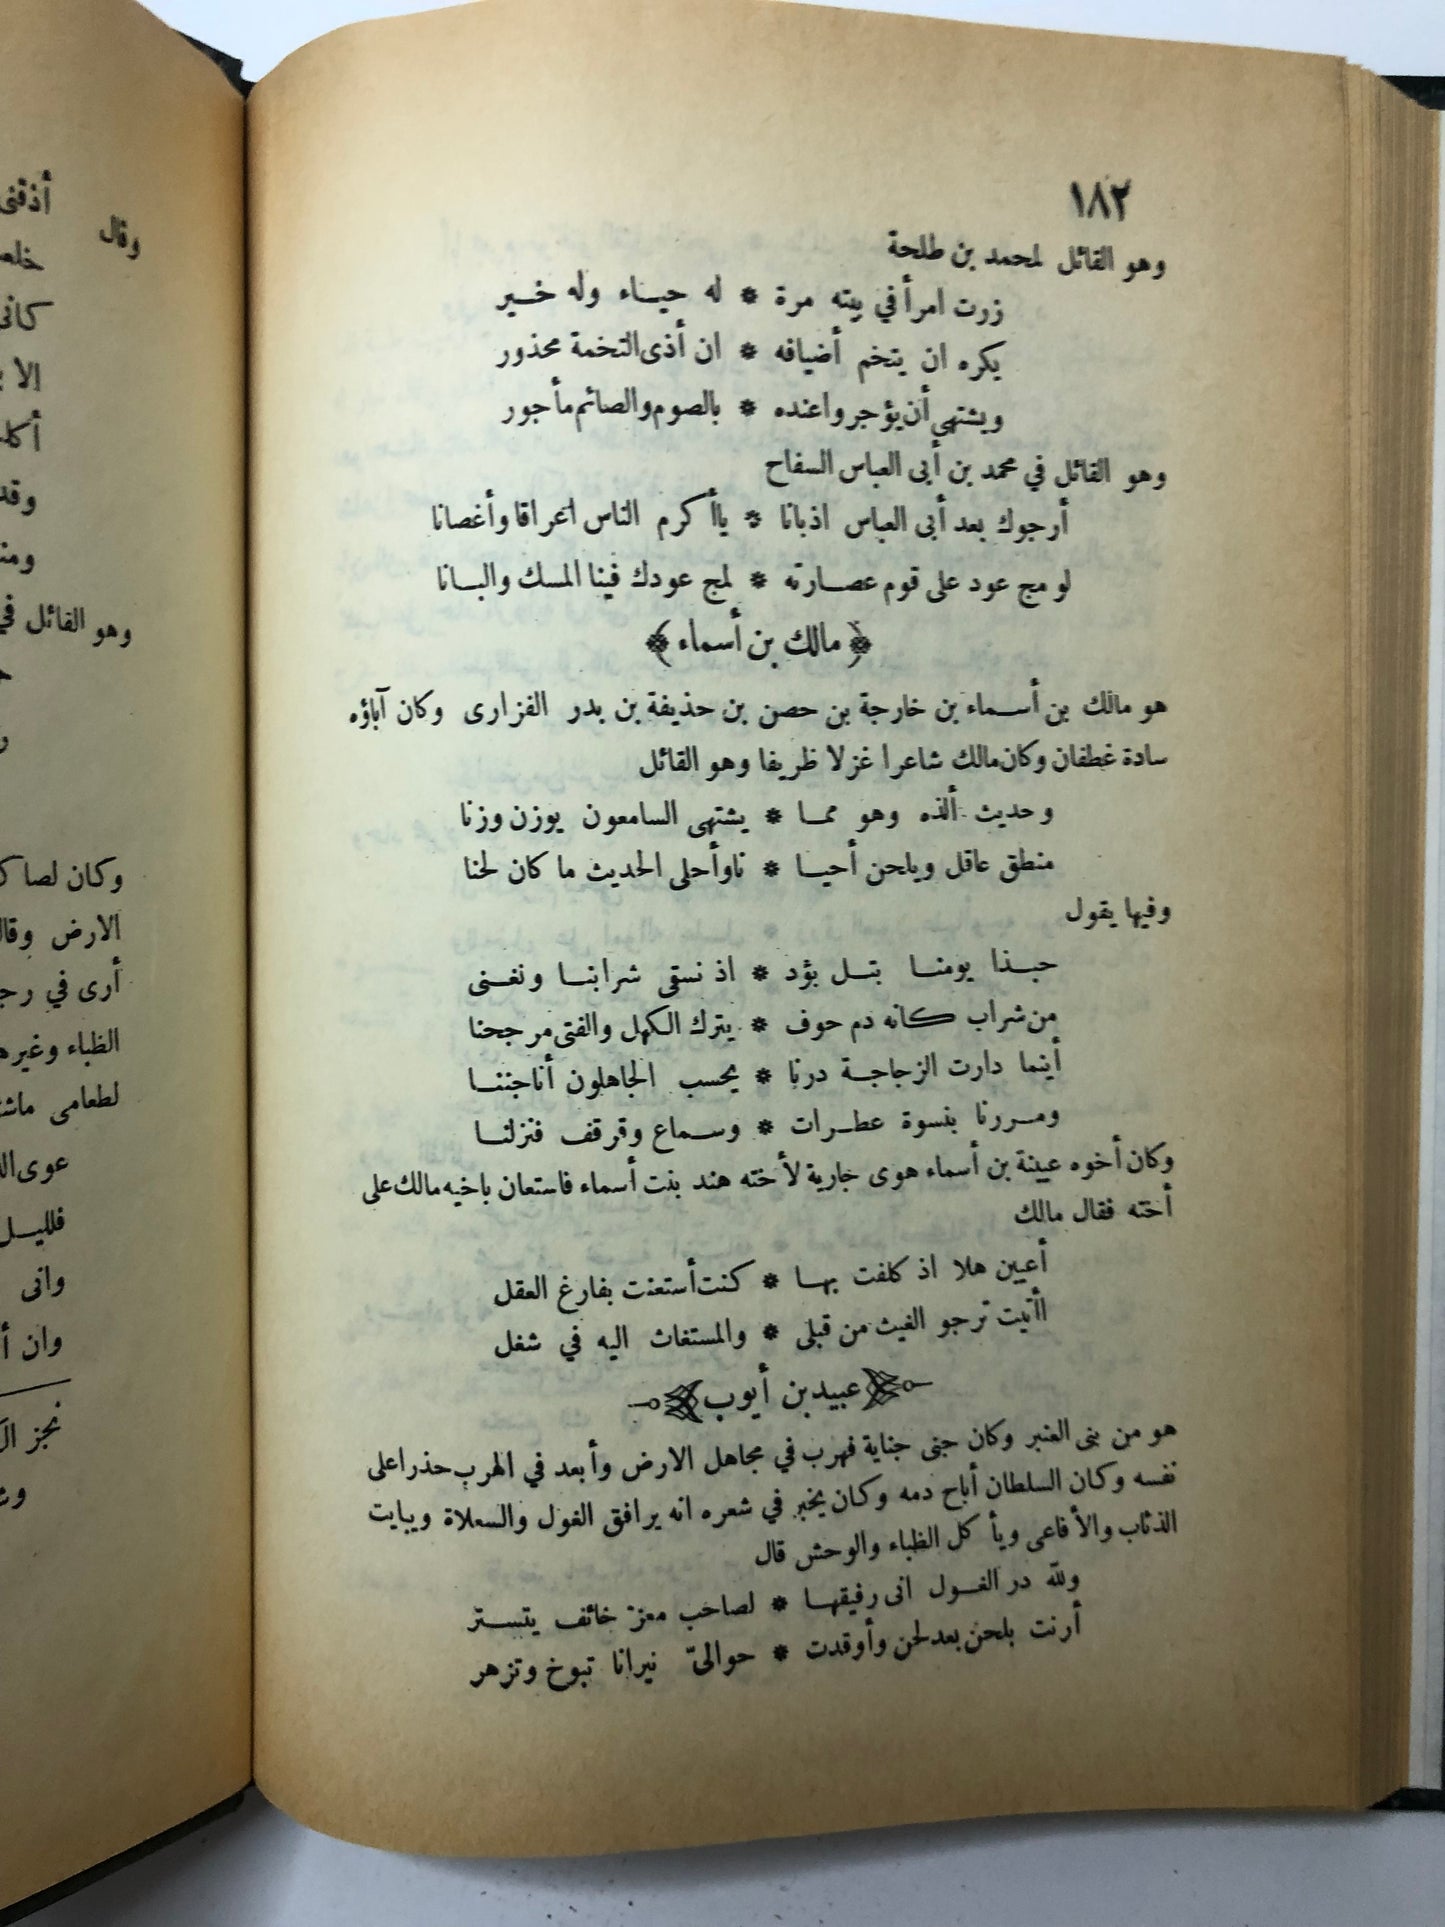 ١٨٢
وهو القائل لمحمد بن طلحة
زرت امرأ في بيته مرة * له حياء وله خير
يكره ان يتخم أضيافه * ان أذى التخمة محذور
ويشتهي أن يؤجروا عنده * بالصوم والصائم مأجور
وهو القائل في محمد بن أبى العباس السفاح
أرجوك بعد أبى العباس اذبانا * ياأكرم الناس اعراقا وأغصانا
لو مج عود على قوم عصارته * لمج عودك فينا المسك والبانا
﴿ مالك بن أسماء ﴾
هو مالك بن أسماء بن خارجة بن حصن بن حذيفة بن بدر الفزارى وكان آباؤه
سادة غطفان وكان مالك شاعرا غزلا ظريفا وهو القائل
وحديث ألذه وهو مما * يشتهى السامعون يوزن وزنا
منطق عاقل ويلحن أحيا * ناوأحلى الحديث ما كان لحنا
وفيها يقول
حبذا يومنا بتل بؤد * اذ نسقى شرابنا ونغنى
من شراب كانه دم حوف * يترك الكهل والفتى مرجحنا
أينما دارت الزجاجة درنا * يحسب الجاهلون أناجننا
ومررنا بنسوة عطرات * وسماع وقرقف فنزلنا
وكان أخوه عيينة بن أسماء هوى جارية لأخته هند بنت أسماء فاستعان باخيه مالك على
أخته فقال مالك
أعيين هلا اذ كلفت بها * كنت أستعنت بفارغ العقل
اأتيت ترجو الغيث من قبلى * والمستغاث اليه في شغل
عبيد بن أيوب
هو من بنى العنبر وكان جنى جناية فهرب في مجاهل الارض وأبعد في الهرب حذرا على
نفسه وكان السلطان أباح دمه وكان يخبر في شعره انه يرافق الغول والسعلاة ويبايت
الذئاب والأفاعى ويأكل الظباء والوحش قال
ولله در الغول انى رفيقها * لصاحب معزز خائف يتستر
أرنت بلحن بعد لحن وأوقدت * حوالىّ نيرانا تبوخ وتزهر
أذقنى
وقال
كانى
وقد
وهو القائل في
وكان لصا
الارض
أرى في
الظباء
لطعامى
وانى
وان
نجز